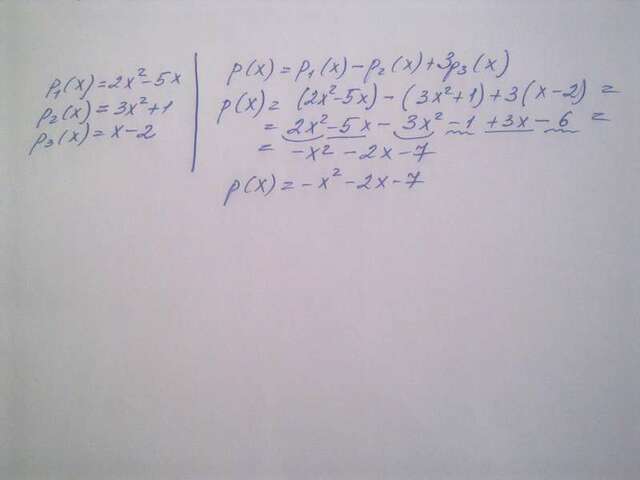 p₁(x)=2x²-5x
p₂(x)=3x²+1
p₃(x)=x-2
p(x)=p₁(x)-p₂(x)+3p₃(x)
p(x)=(2x²-5x)-(3x²+1)+3(x-2)=
=2x²-5x-3x²-1+3x-6=
=-x²-2x-7
p(x)=-x²-2x-7